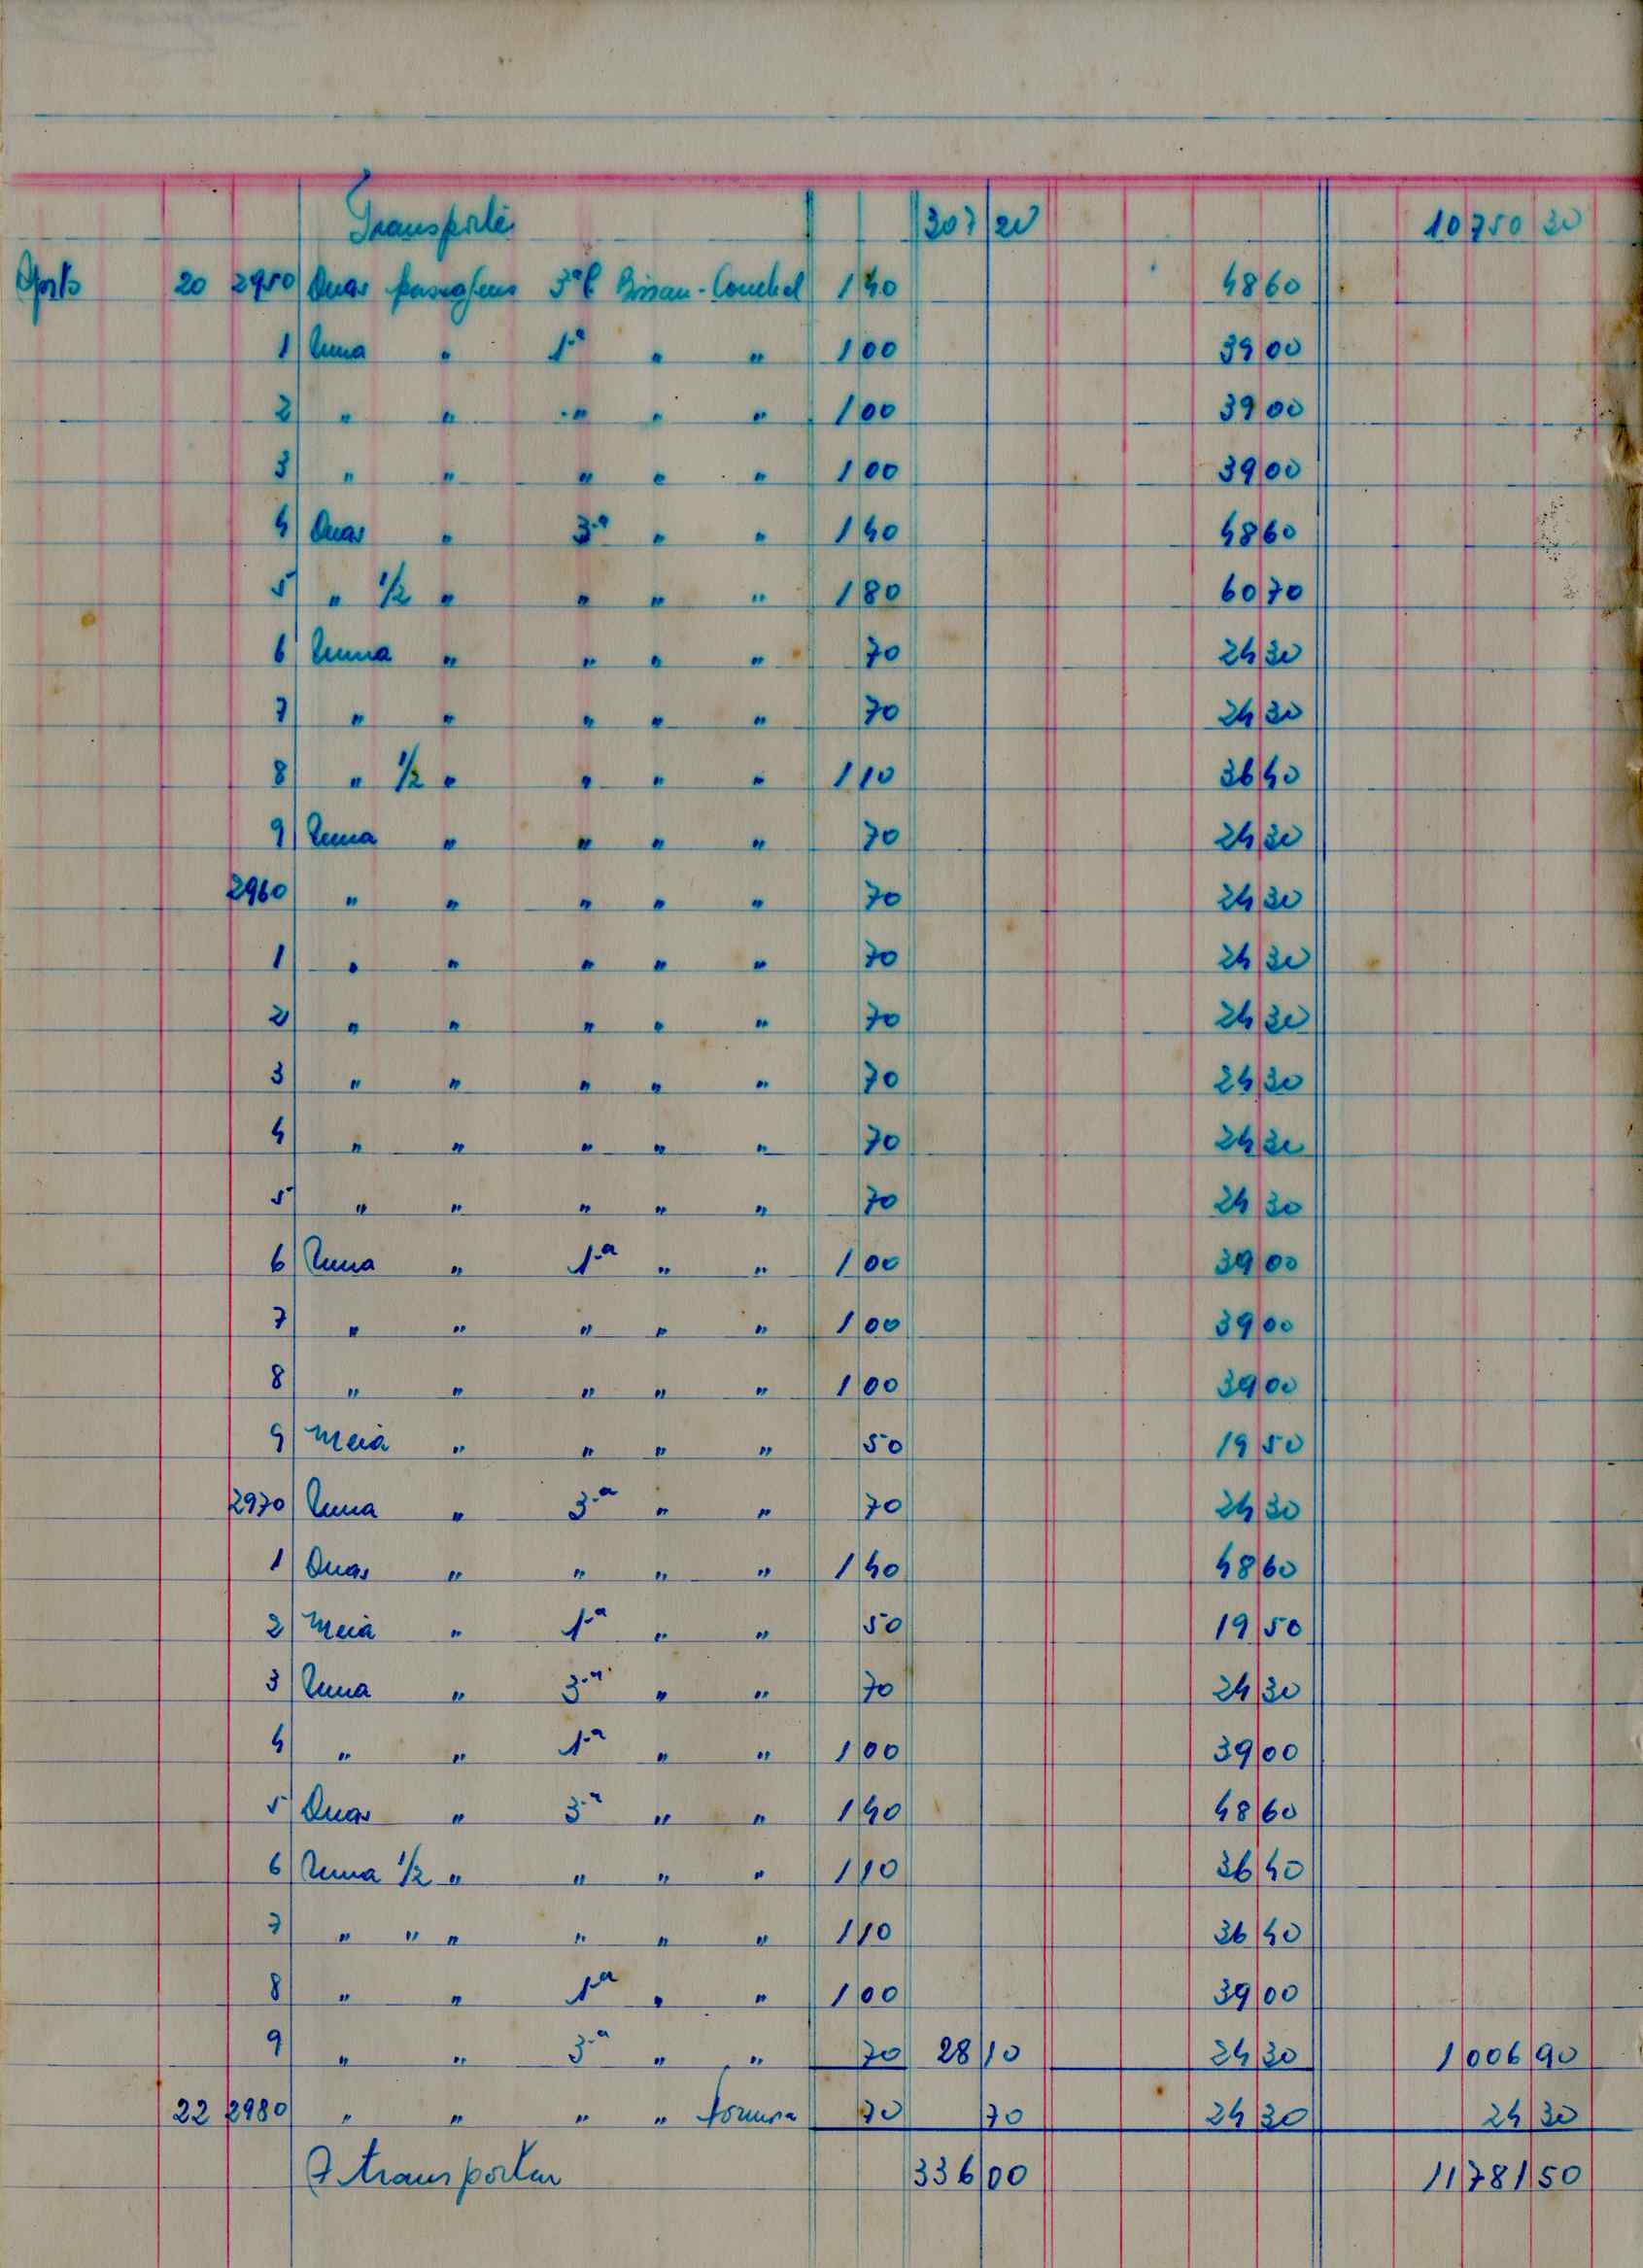 Transporte 307 20 10750 30
Agosto 20 2950 Duas passagens 3ª cl Bissau - 1 40 48 60
1 Uma " 1ª " " 1 00 39 00
2 " " " " " 1 00 39 00
3 " " " " " 1 00 39 00
4 Duas " 3ª " " 1 40 48 60
5 " 1/2 " " " " 1 80 60 70
6 Uma " " " " 70 24 30
7 " " " " " 70 24 30
8 " 1/2 " " " " 1 10 36 40
9 Uma " " " " 70 24 30
2960 " " " " " 70 24 30
1 " " " " " 70 24 30
2 " " " " " 70 24 30
3 " " " " " 70 24 30
4 " " " " " 70 24 30
5 " " " " " 70 24 30
6 Uma " 1ª " " 1 00 39 00
7 " " " " " 1 00 39 00
8 " " " " " 1 00 39 00
9 Meia " " " " 50 19 50
2970 Uma " 3ª " " 70 24 30
1 Duas " " " " 1 40 48 60
2 Meia " 1ª " " 50 19 50
3 Uma " 3ª " " 70 24 30
4 " " 1ª " " 1 00 39 00
5 Duas " 3ª " " 1 40 48 60
6 Uma 1/2 " " " " 1 10 36 40
7 " " " " " " 1 10 36 40
8 " " 1ª " " 1 00 39 00
9 " " 3ª " " 70 28 10 24 30 1006 90
22 2980 " " " " 70 70 24 30 24 30
A transportar 336 00 11781 50